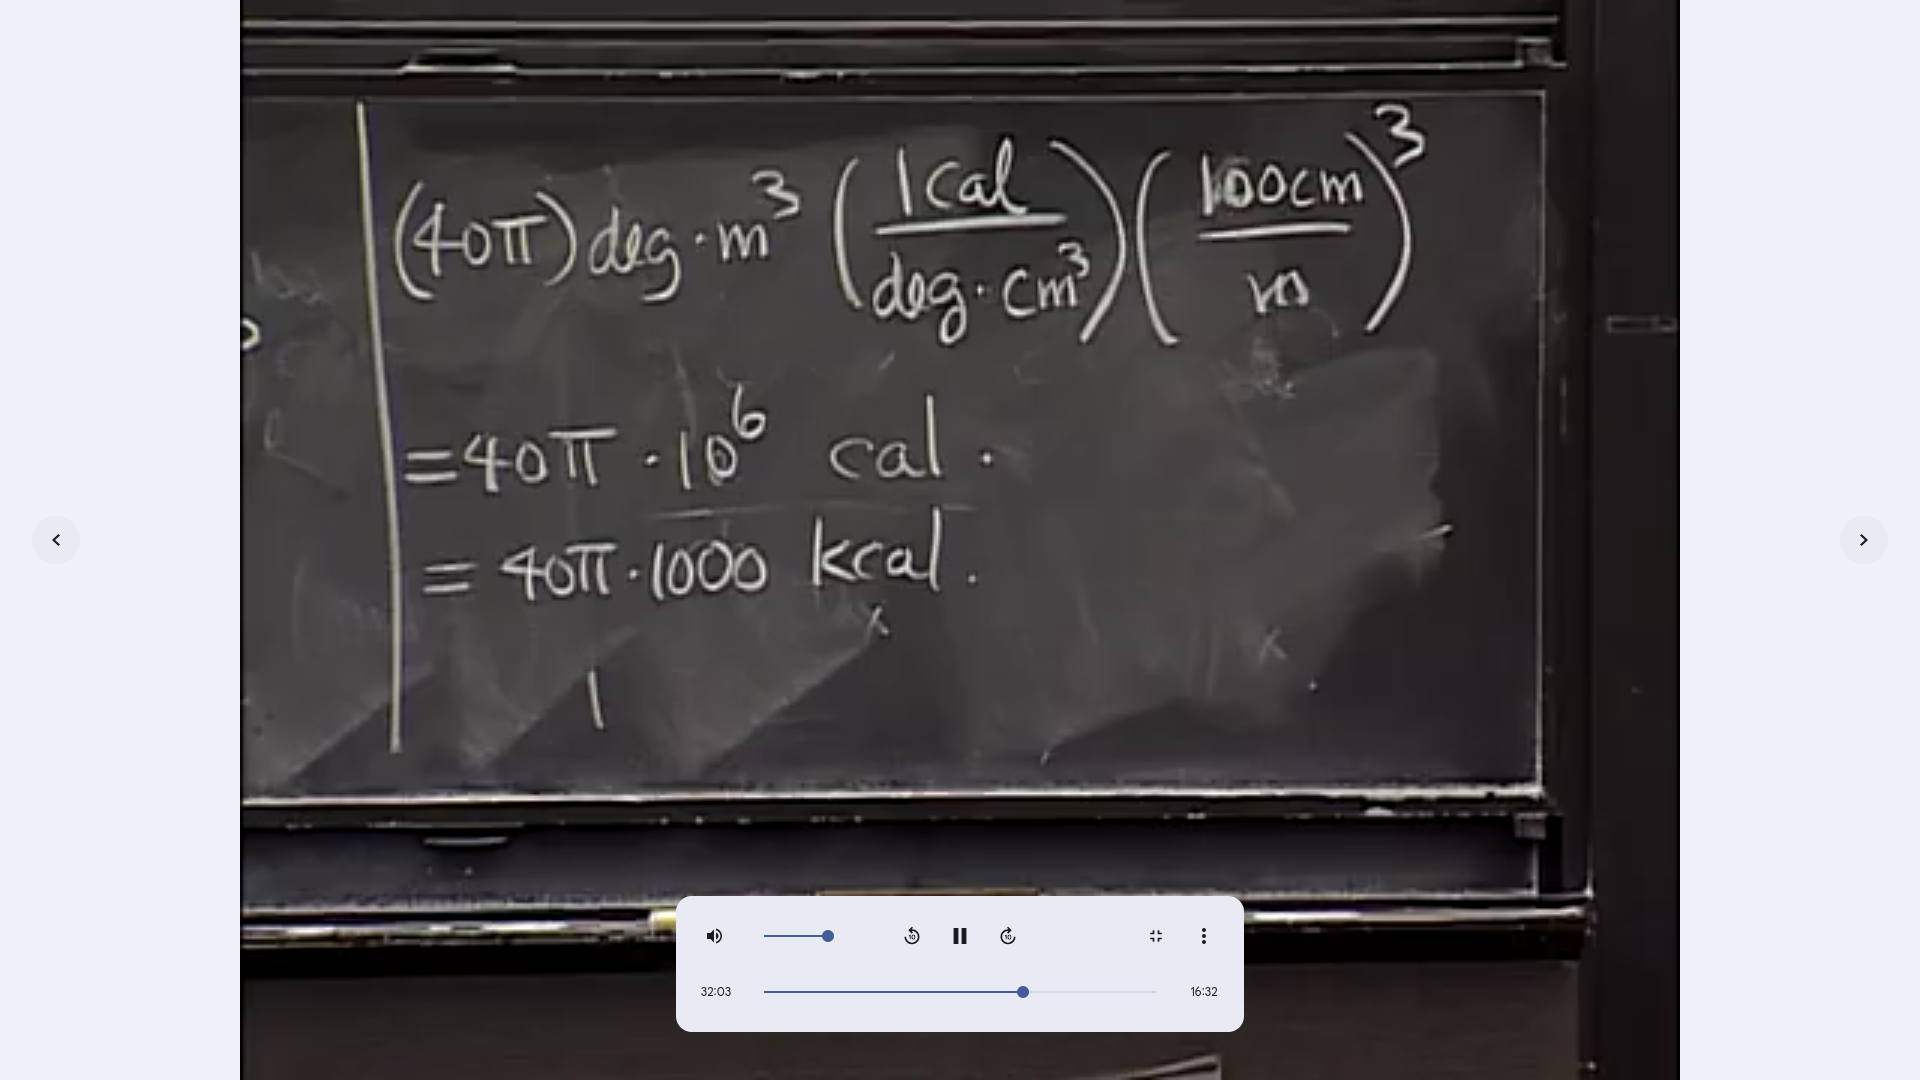 (40π) deg·m³ (1 cal / deg·cm³) (100cm / m)³
= 40π · 10⁶ cal.
= 40π · 1000 kcal.
1
10
10
32:03
16:32